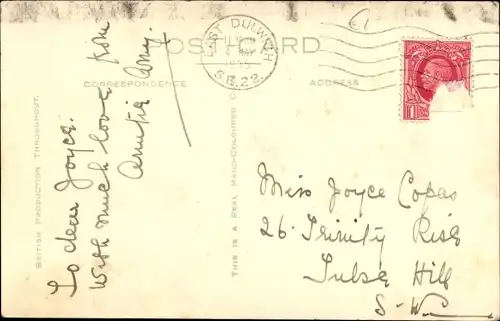 POST CARD
CORRESPONDENCE
ADDRESS
BRITISH PRODUCTION THROUGHOUT.
THIS IS A REAL HAND-COLOURED
EAST DULWICH
S.E.22.
To dear Joyce.
With much love from
Auntie Amy.
Miss Joyce Copas
26 Trinity Rise
Tulse Hill
S-W